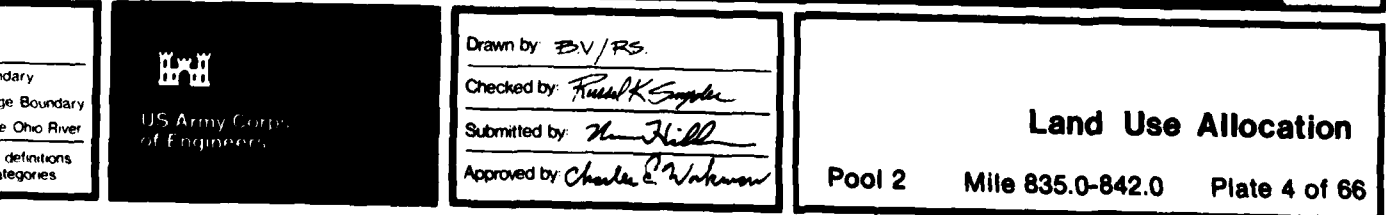 ndary
ge Boundary
e Ohio River
definitions
ategories
US Army Corps
of Engineers
Drawn by: B.V/RS.
Checked by: Russel K Snyder
Submitted by:
Approved by: Charles E. Workman
Land Use Allocation
Pool 2 Mile 835.0-842.0 Plate 4 of 66